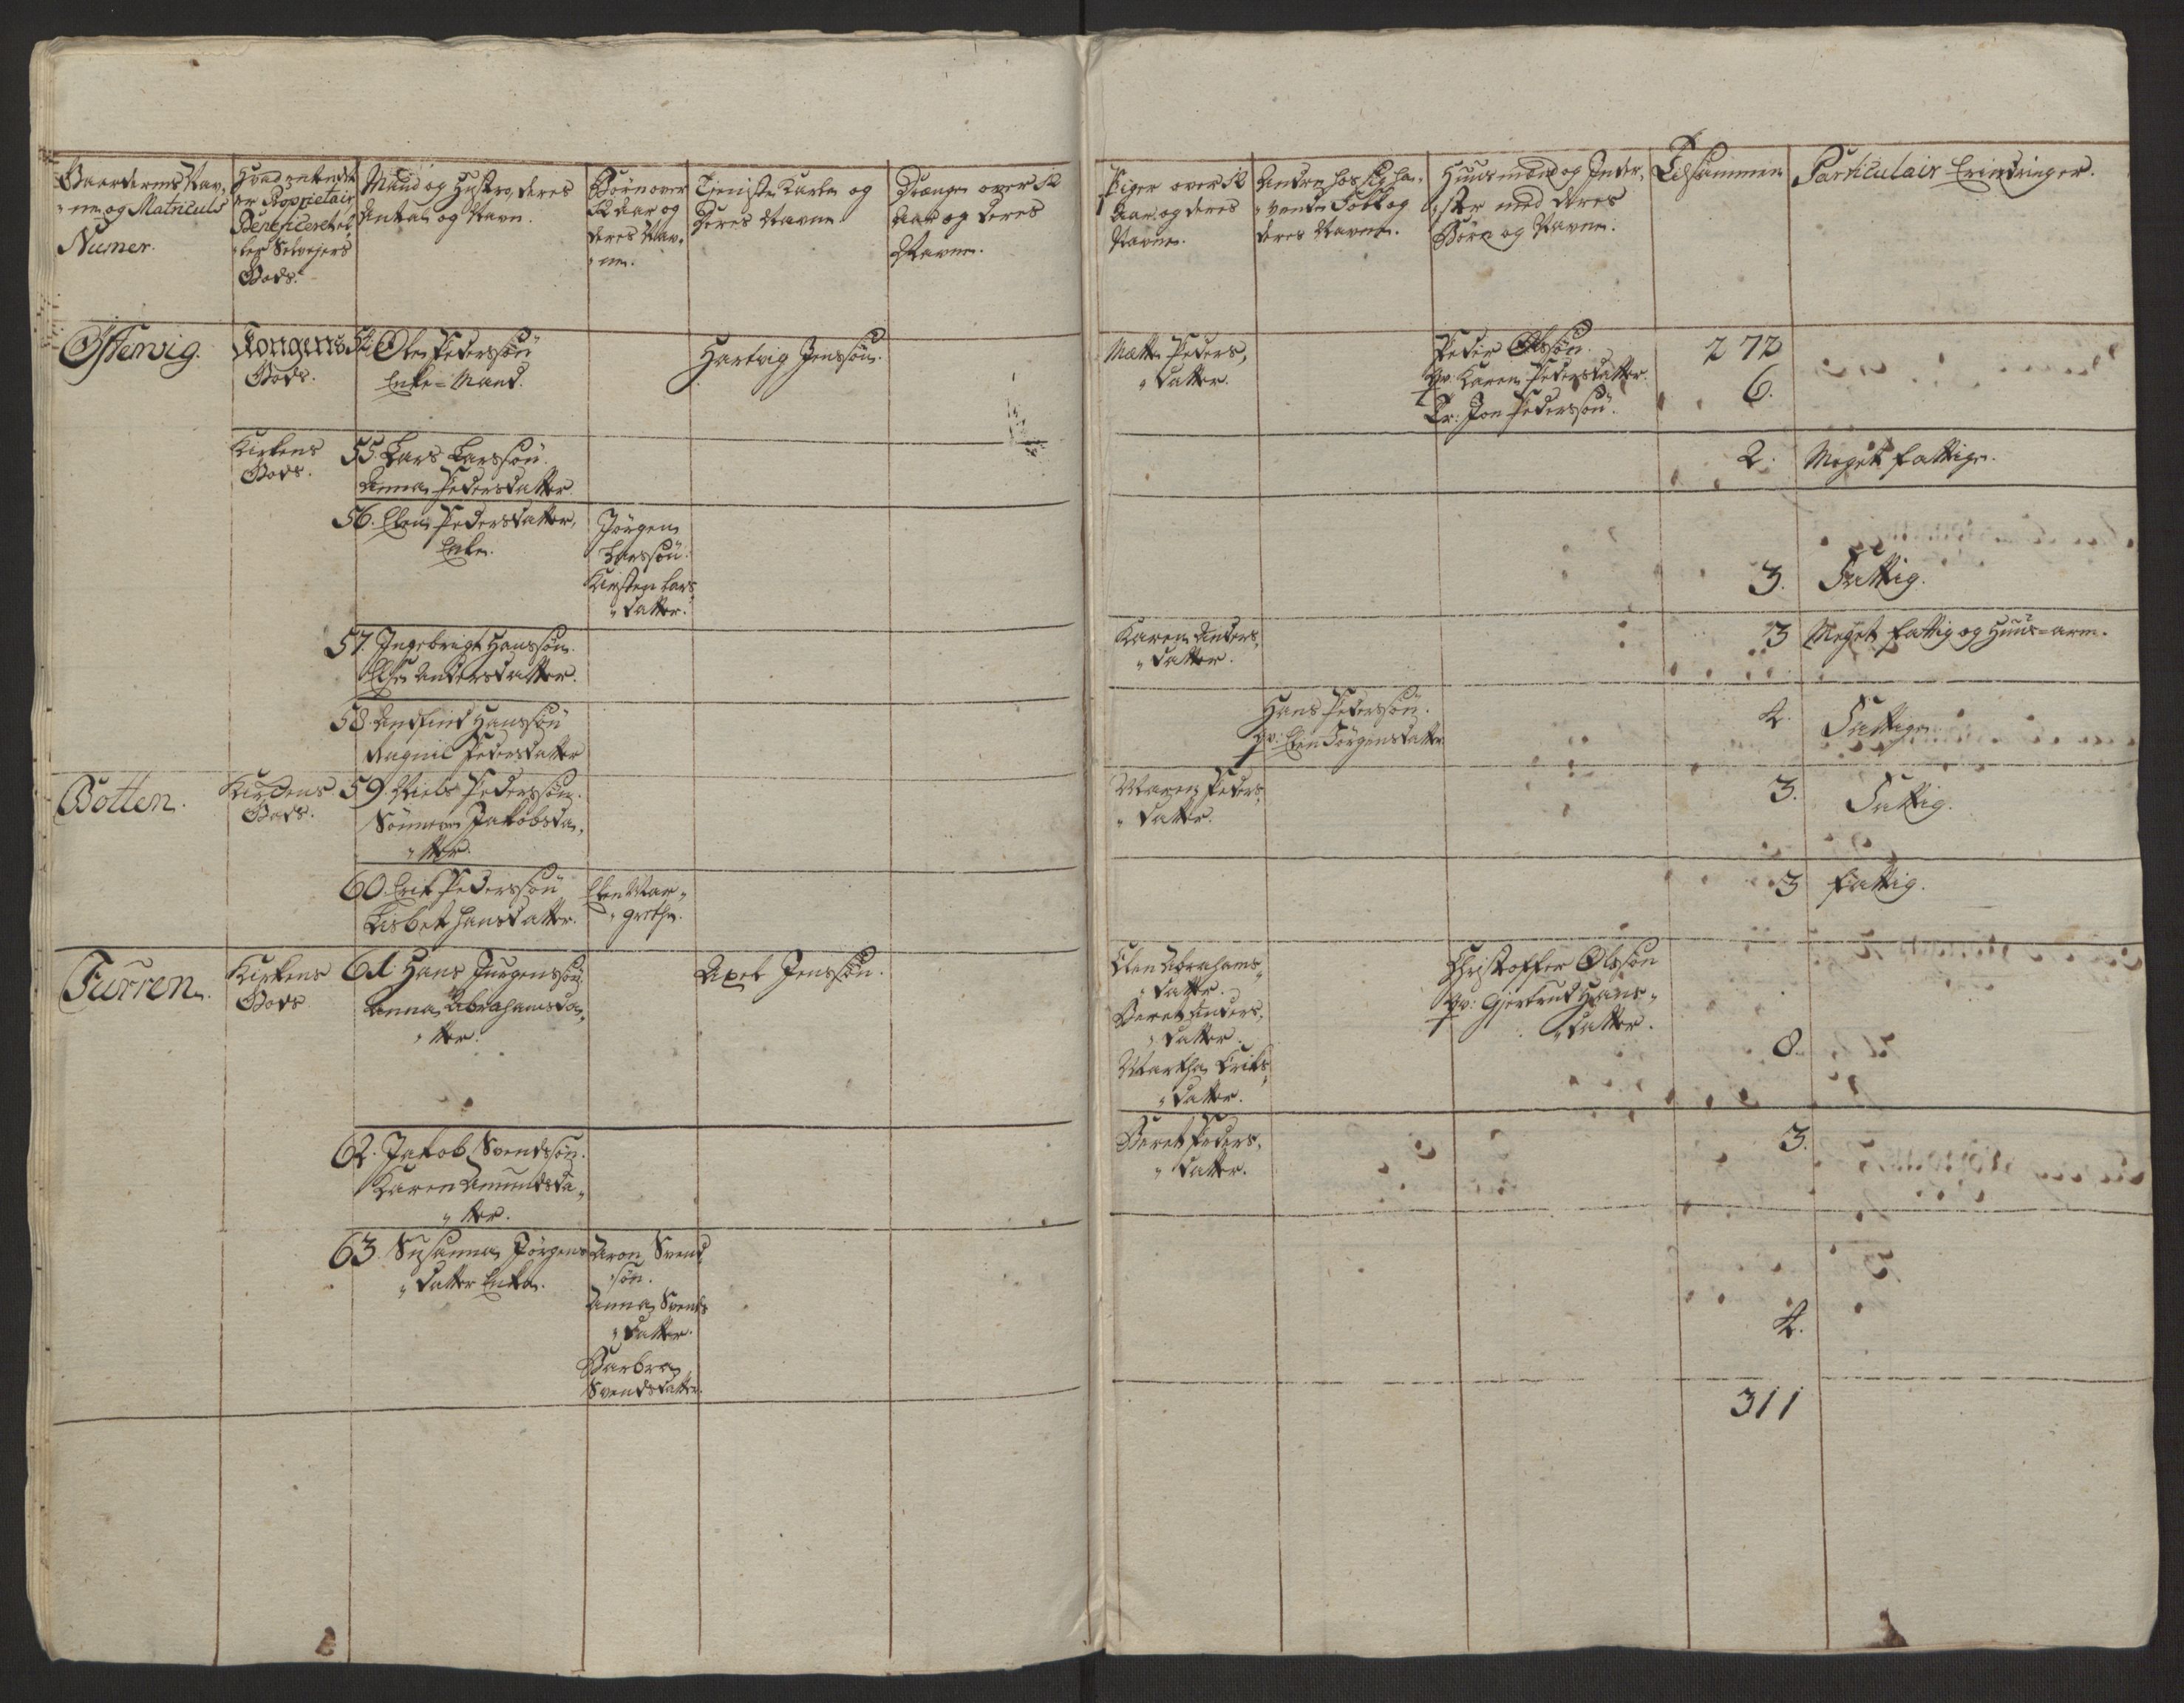 Gaardernes Nav,
"ne og Matriculs
Numer.
Hvad enten det
er Proprietair
Beneficeret el,
"ler Selvejers
Gods.
Mand og Hustro, deres
Antal og Navn.
Börn over
12 Aar og
deres Nav,
"ne.
Tieniste Karle og
deres Navne
Drenge over 12
Aar og deres
Navne.
Piger over 12
Aar og deres
Navne.
Andre hos sig ha,
"vende Folk og
deres Navne.
Huusmænd og Inder,
"ster med deres
Börn og Navne.
Tilsammen
Particulair Erindringer.
Östervig.
Kongens
Gods.
54. Ole Pederssön
Enke=Mand.
Hartvig Jenssön.
Mætte Peders,
"datter.
Peder Olssön
Qv: Karen Pedersdatter.
Er: Jon Pederssön.
272
6.
Kirkens
Gods.
55. Lars Larssön.
Anna Pedersdatter
2.
Meget fattige.
56. Elen Pedersdatter,
Enke.
Jörgen
Larssön.
Kirsten Lars
"datter.
3.
Fattig.
57. Ingebrigt Hanssön.
Else Andersdatter.
Karen Anders,
"datter.
3
Meget fattig og Huus=arm.
58. Andfind Hanssön
Ragnil Pedersdatter
Hans Pederssön.
Qv: Elen Jörgensdatter
4.
Fattige.
Botten.
Kirkens
Gods.
59. Niels Pederssön.
Sönneve Jakobsda,
"tter.
Maren Peders,
"datter.
3.
Fattig.
60. Erik Pederssön
Lisbet Hansdatter.
Elen Mar,
"grethe.
3
fattig.
Furren.
Kirkens
Gods
61. Hans Jürgenssön.
Anna Abrahamsda,
"tter.
Axel Jenssön.
Elen Abrahams,
"datter.
Beret Anders,
"datter.
Martha Eriks,
"datter.
Christoffer Olssön
Qv: Gjertrud Hans,
"datter.
8.
62. Jakob Svendssön.
Karen Amundsda,
"tter.
Beret Peders,
"datter.
3.
63. Susanna Jörgens
"datter Enke.
Aron Svend
sön.
Anna Svends
"datter.
Barbra
Svendsdatter.
4.
311